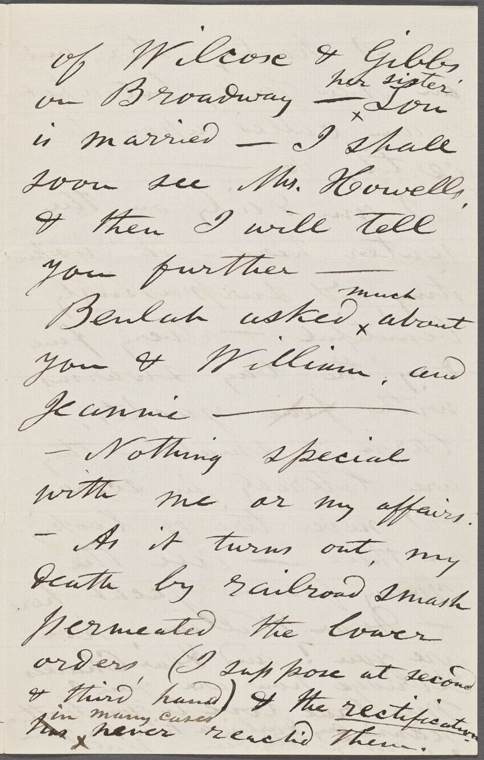 of Wilcox & Gibbs
her sister
on Broadway — x Lou
is married — I shall
soon see Mr. Howells,
& then I will tell
you further —
much
Beulah asked x about
you & William, and
Jeannie —
— Nothing special
with me or my affairs.
— As it turns out, my
death by railroad smash
permeated the lower
orders, (I suppose at second
& third hand) & the rectification
in many cases
has x never reach'd them.